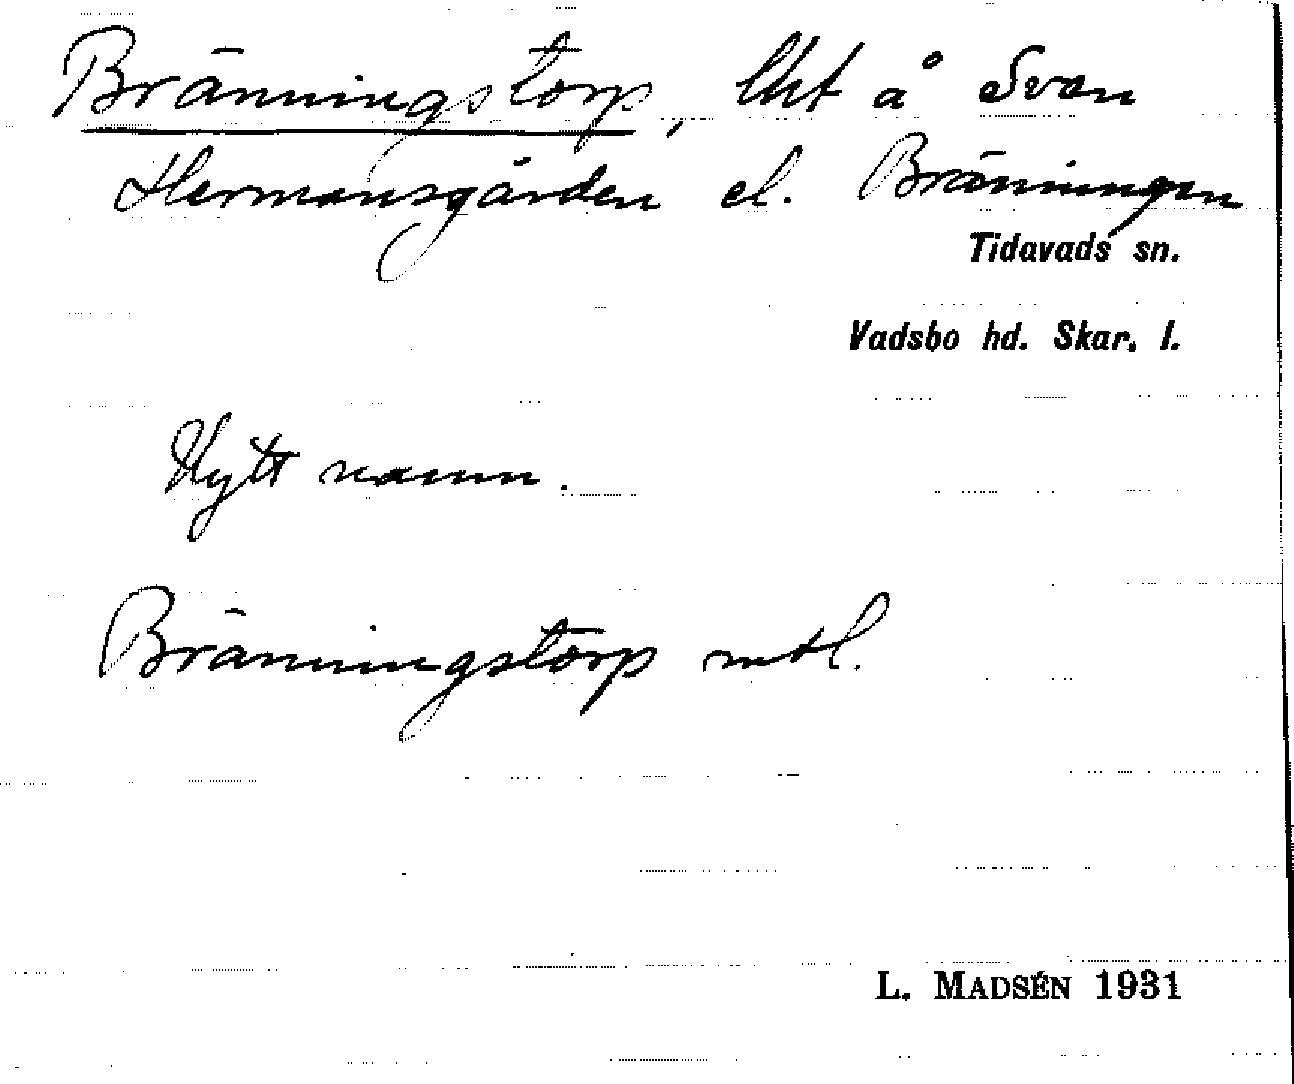 Bränningstorp, lht å Sven
Hermansgården el. Bränningen
Tidavads sn.
Vadsbo hd. Skar. l.
Nytt namn.
Bränningstorp mtl.
L. MADSÉN 1931